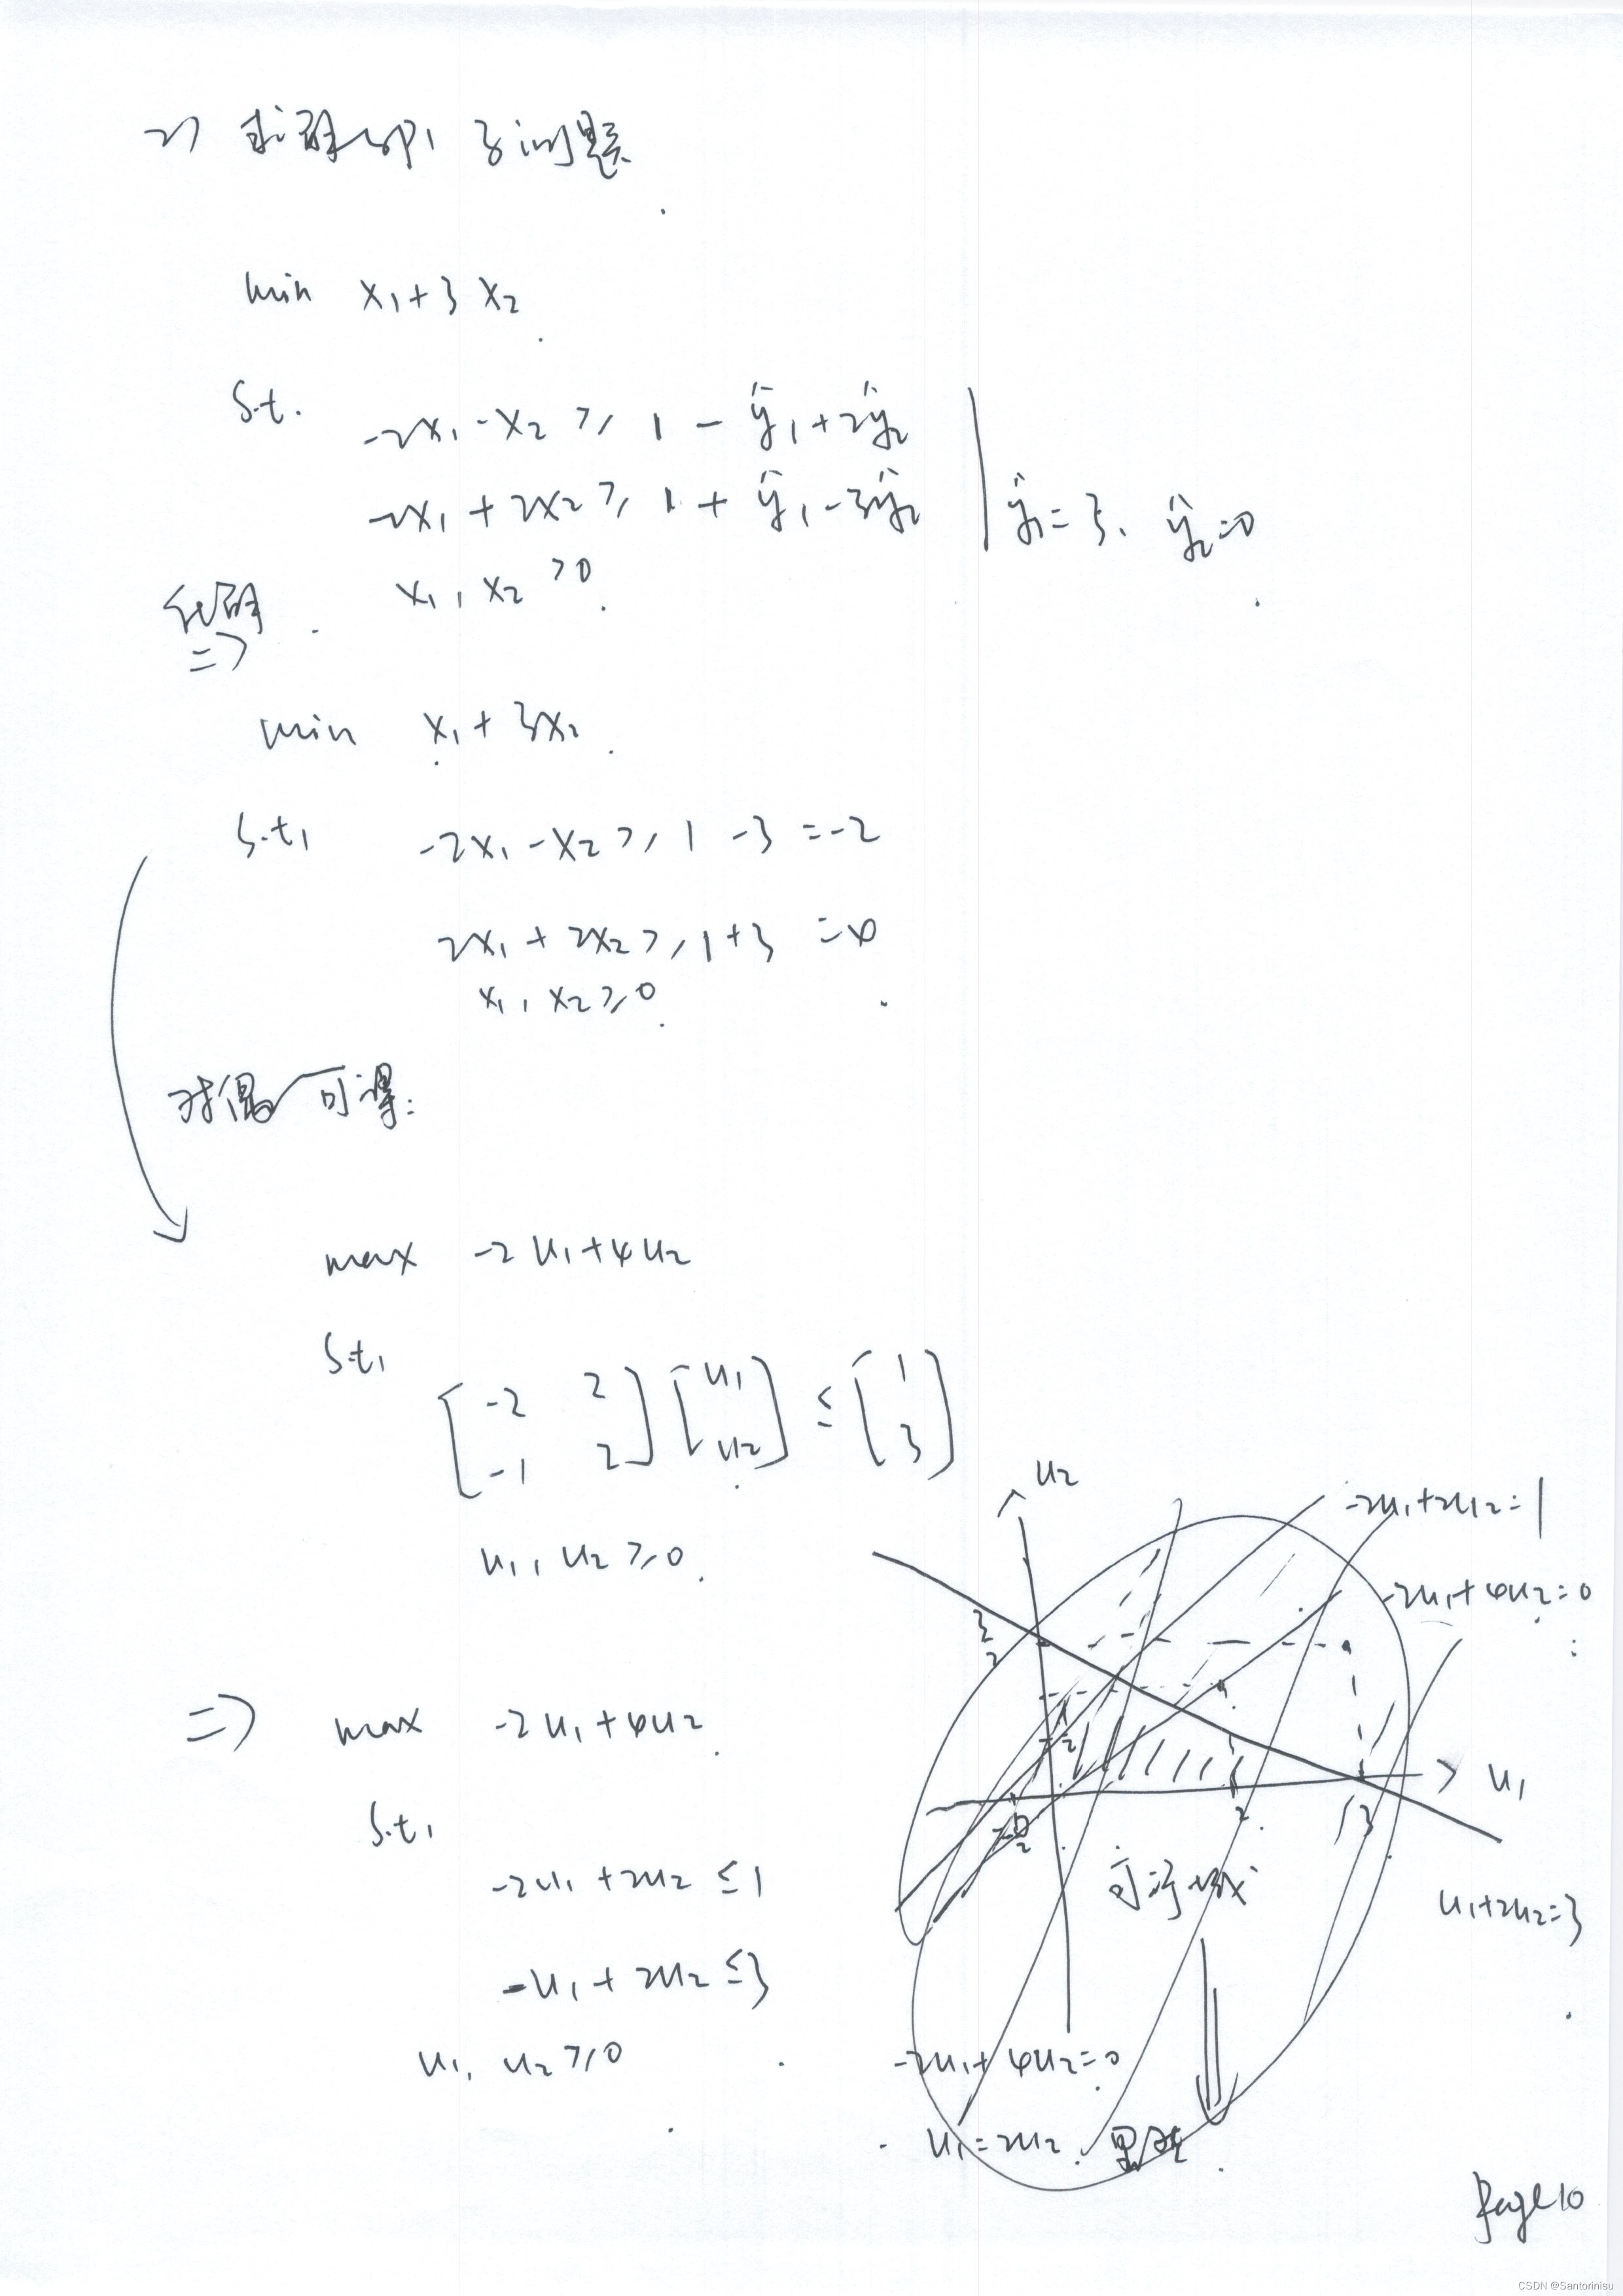 2) 求解SP1 子问题
min x1+3x2
s.t. -2x1-x2 ≥ 1-ŷ1+2ŷ2
-2x1+2x2 ≥ 1+ŷ1-3ŷ2
ŷ1=3, ŷ2=0
x1, x2 ≥0
化解
=>
min x1+3x2
s.t. -2x1-x2 ≥ 1-3=-2
2x1+2x2 ≥ 1+3=4
x1, x2 ≥0
对偶可得:
max -2u1+4u2
s.t.
[-2 2
-1 2] [u1
u2] ≤ [1
3]
u1, u2 ≥0
=> max -2u1+4u2
s.t.
-2u1+2u2 ≤1
-u1+2u2 ≤3
u1, u2 ≥0
u2
-2u1+2u2=1
-2u1+4u2=0
3
2
2
3
u1
可行域
u1+2u2=3
-2u1+4u2=0
u1=2u2
Page10
CSDN @Santorinisu